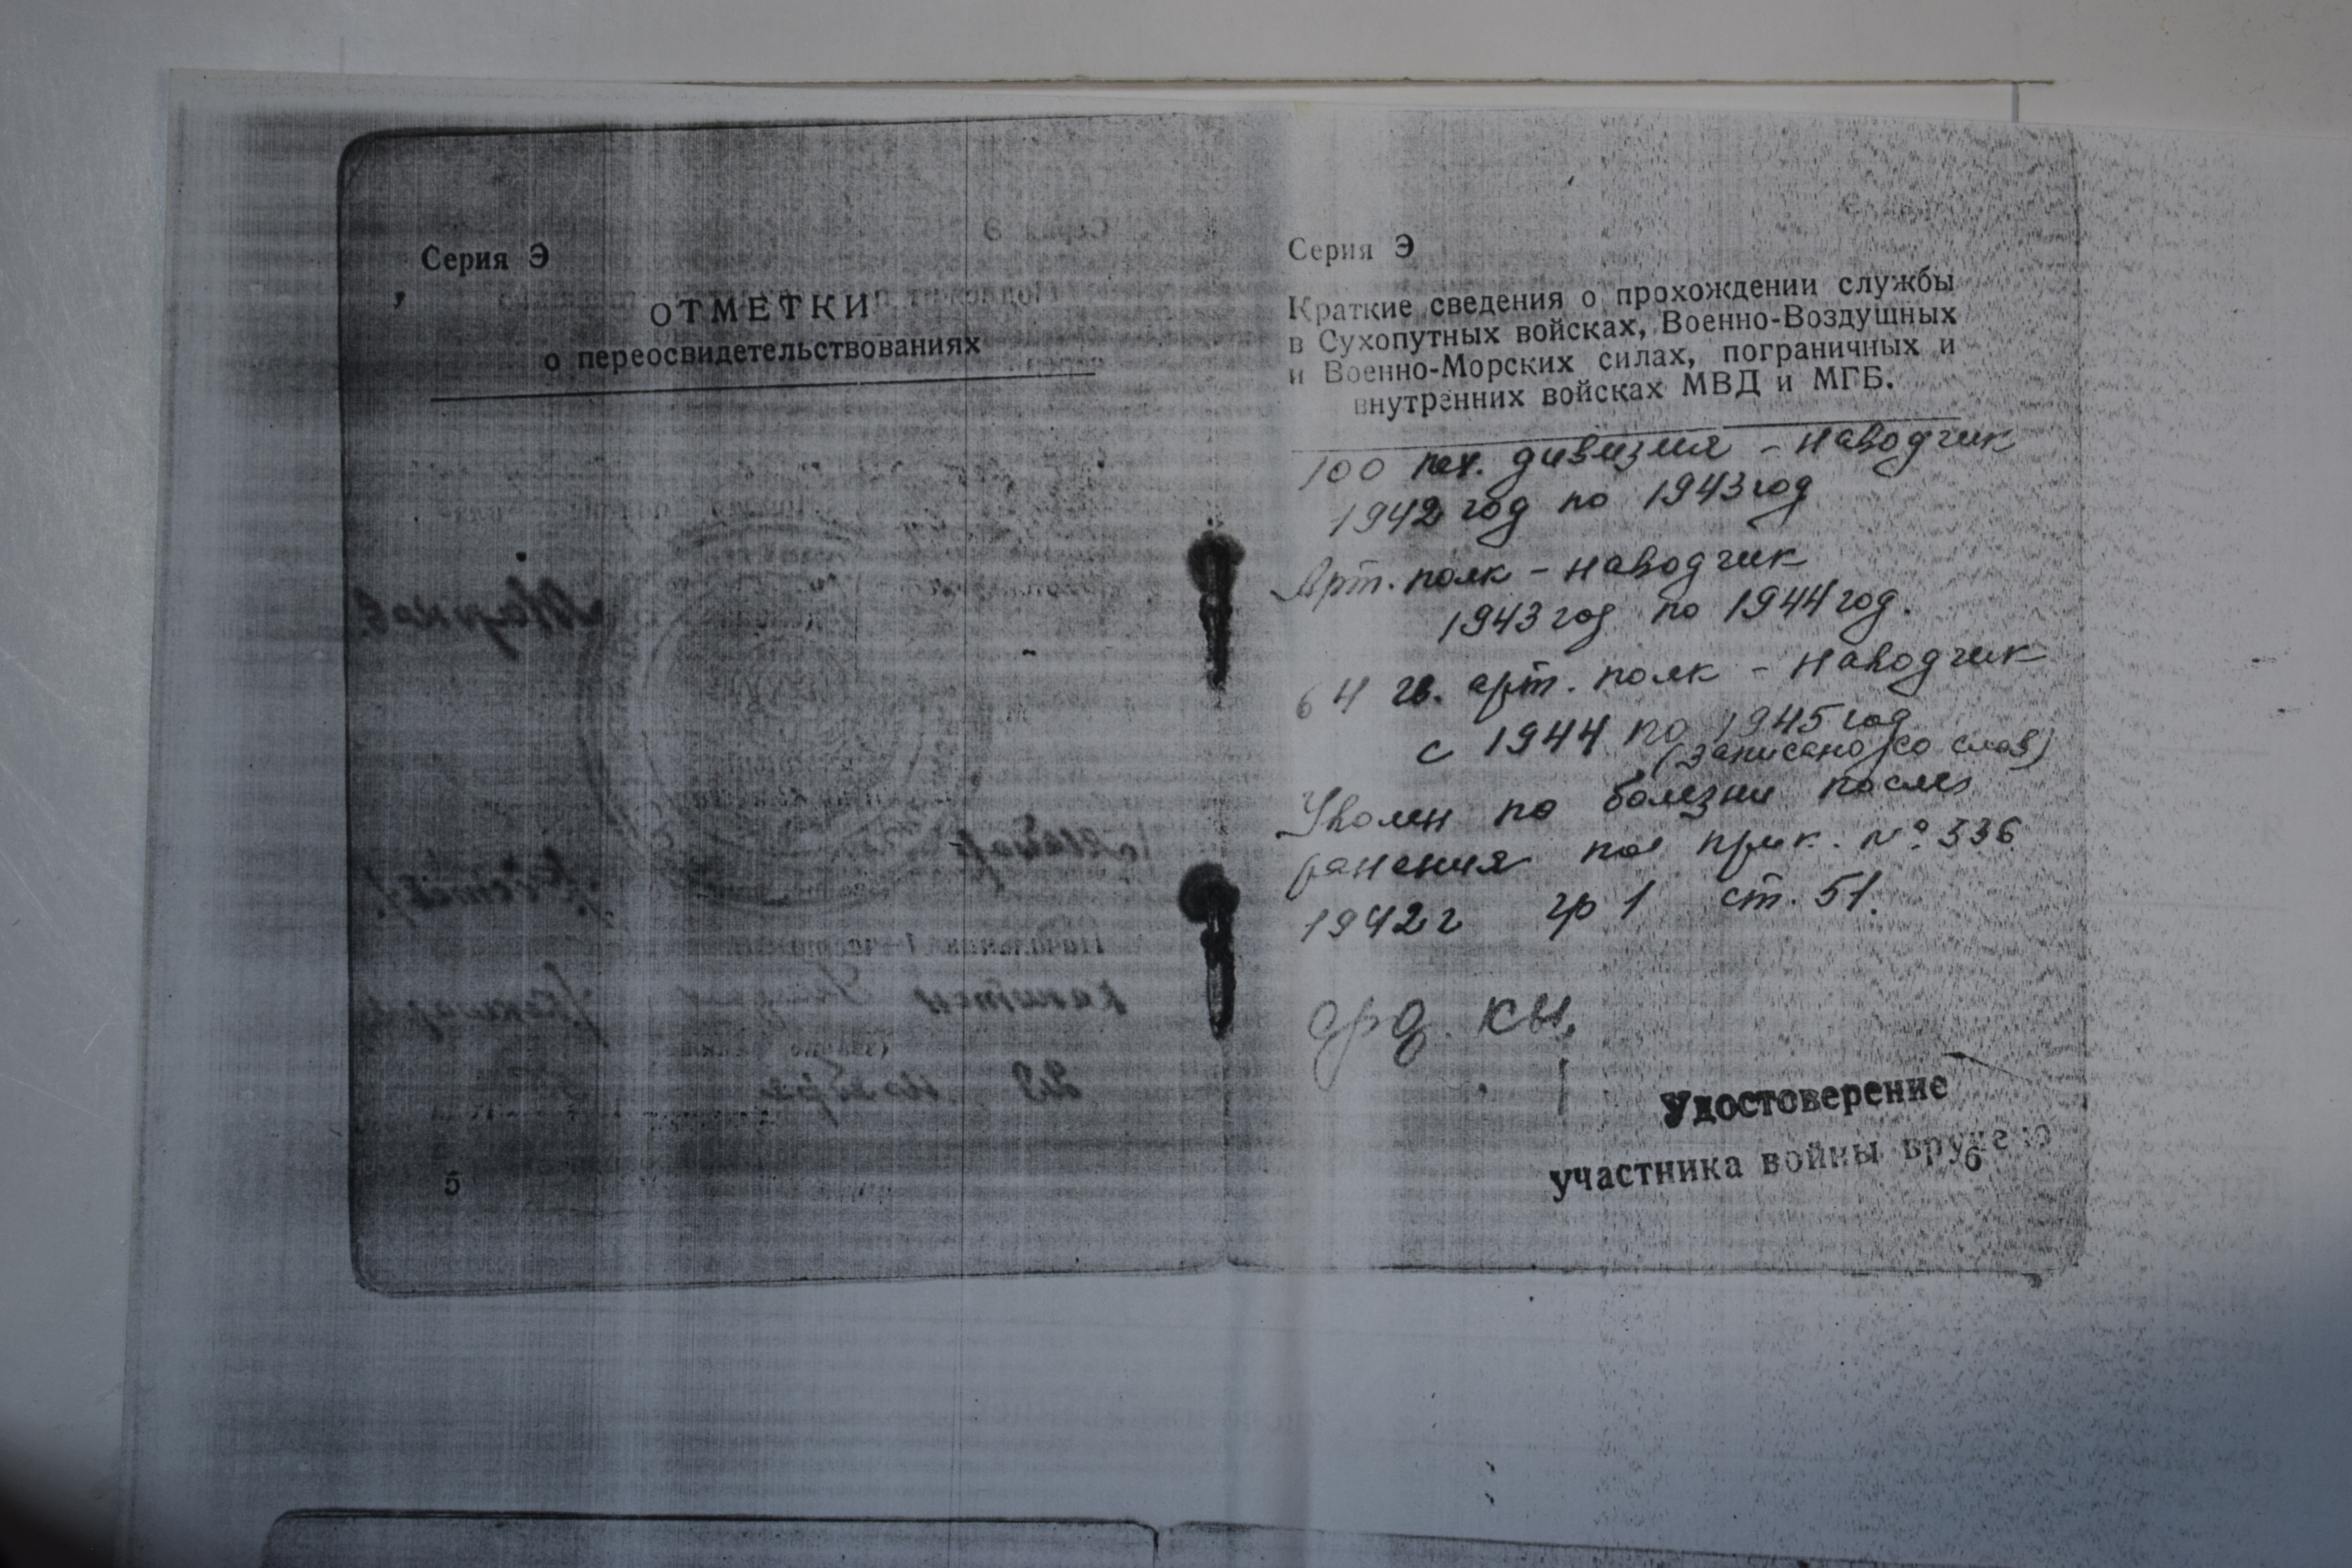 Серия Э
ОТМЕТКИ
о переосвидетельствованиях
5
Серия Э
Краткие сведения о прохождении службы
в Сухопутных войсках, Военно-Воздушных
и Военно-Морских силах, пограничных и
внутренних войсках МВД и МГБ.
100 пех. дивизия - наводчик
1942 год по 1943 год
Арт. полк - наводчик
1943 год по 1944 год.
64 гв. арт. полк - наводчик
с 1944 по 1945 год
(записано со слов)
Уволен по болезни после
ранения по прик. № 336
1942 г гр 1 ст. 51.
Удостоверение
участника войны вручено
6